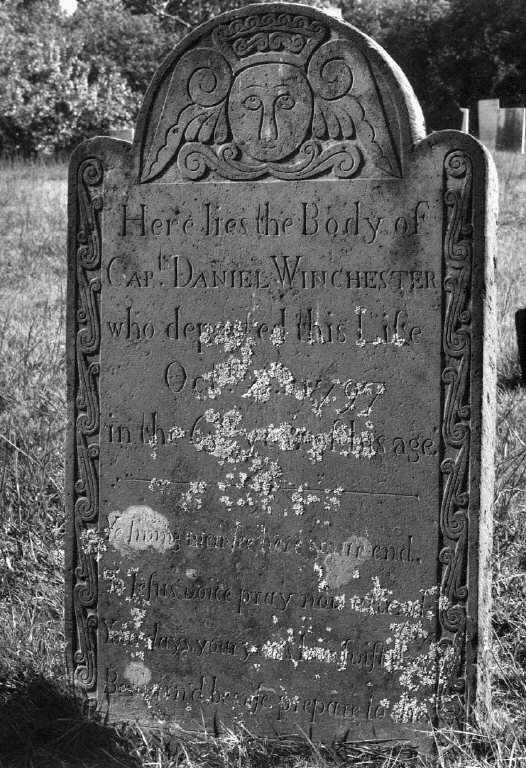 Here lies the Body of
Capt. DANIEL WINCHESTER
who departed this Life
Oct 1797
in the year of his age
Ye living men see here your end,
To Jesus voice pray now attend
Your days, your years how swift
Be warn'd be wise prepare to die